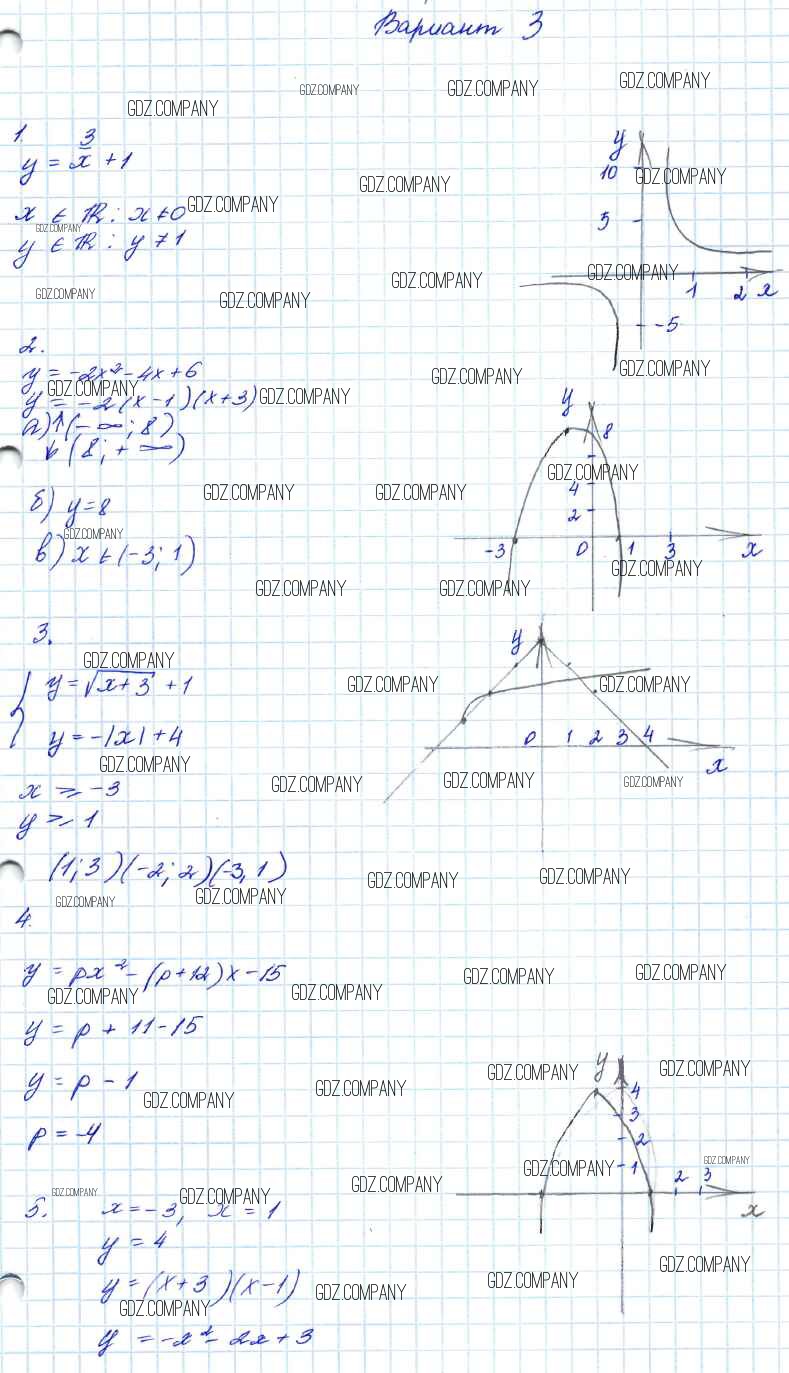 Вариант 3
1.
y = 3/x + 1
x ∈ ℝ : x ≠ 0
y ∈ ℝ : y ≠ 1
y
10
5
1 2 x
-5
2.
y = -2x² - 4x + 6
y = -2(x-1)(x+3)
а) ↑ (-∞; 8)
↓ (8; +∞)
б) y = 8
в) x ∈ (-3; 1)
y
8
4
2
-3 0 1 3 x
3.
y = √(x+3) + 1
y = -|x| + 4
x ⩾ -3
y ⩾ 1
(1; 3) (-2; 2) (-3, 1)
y
0 1 2 3 4
x
4.
y = px² - (p+12)x - 15
y = p + 11 - 15
y = p - 1
p = -4
5. x = -3, x = 1
y = 4
y = (x+3)(x-1)
y = -x² - 2x + 3
y
4
3
2
1
2 3
x
GDZ.COMPANY